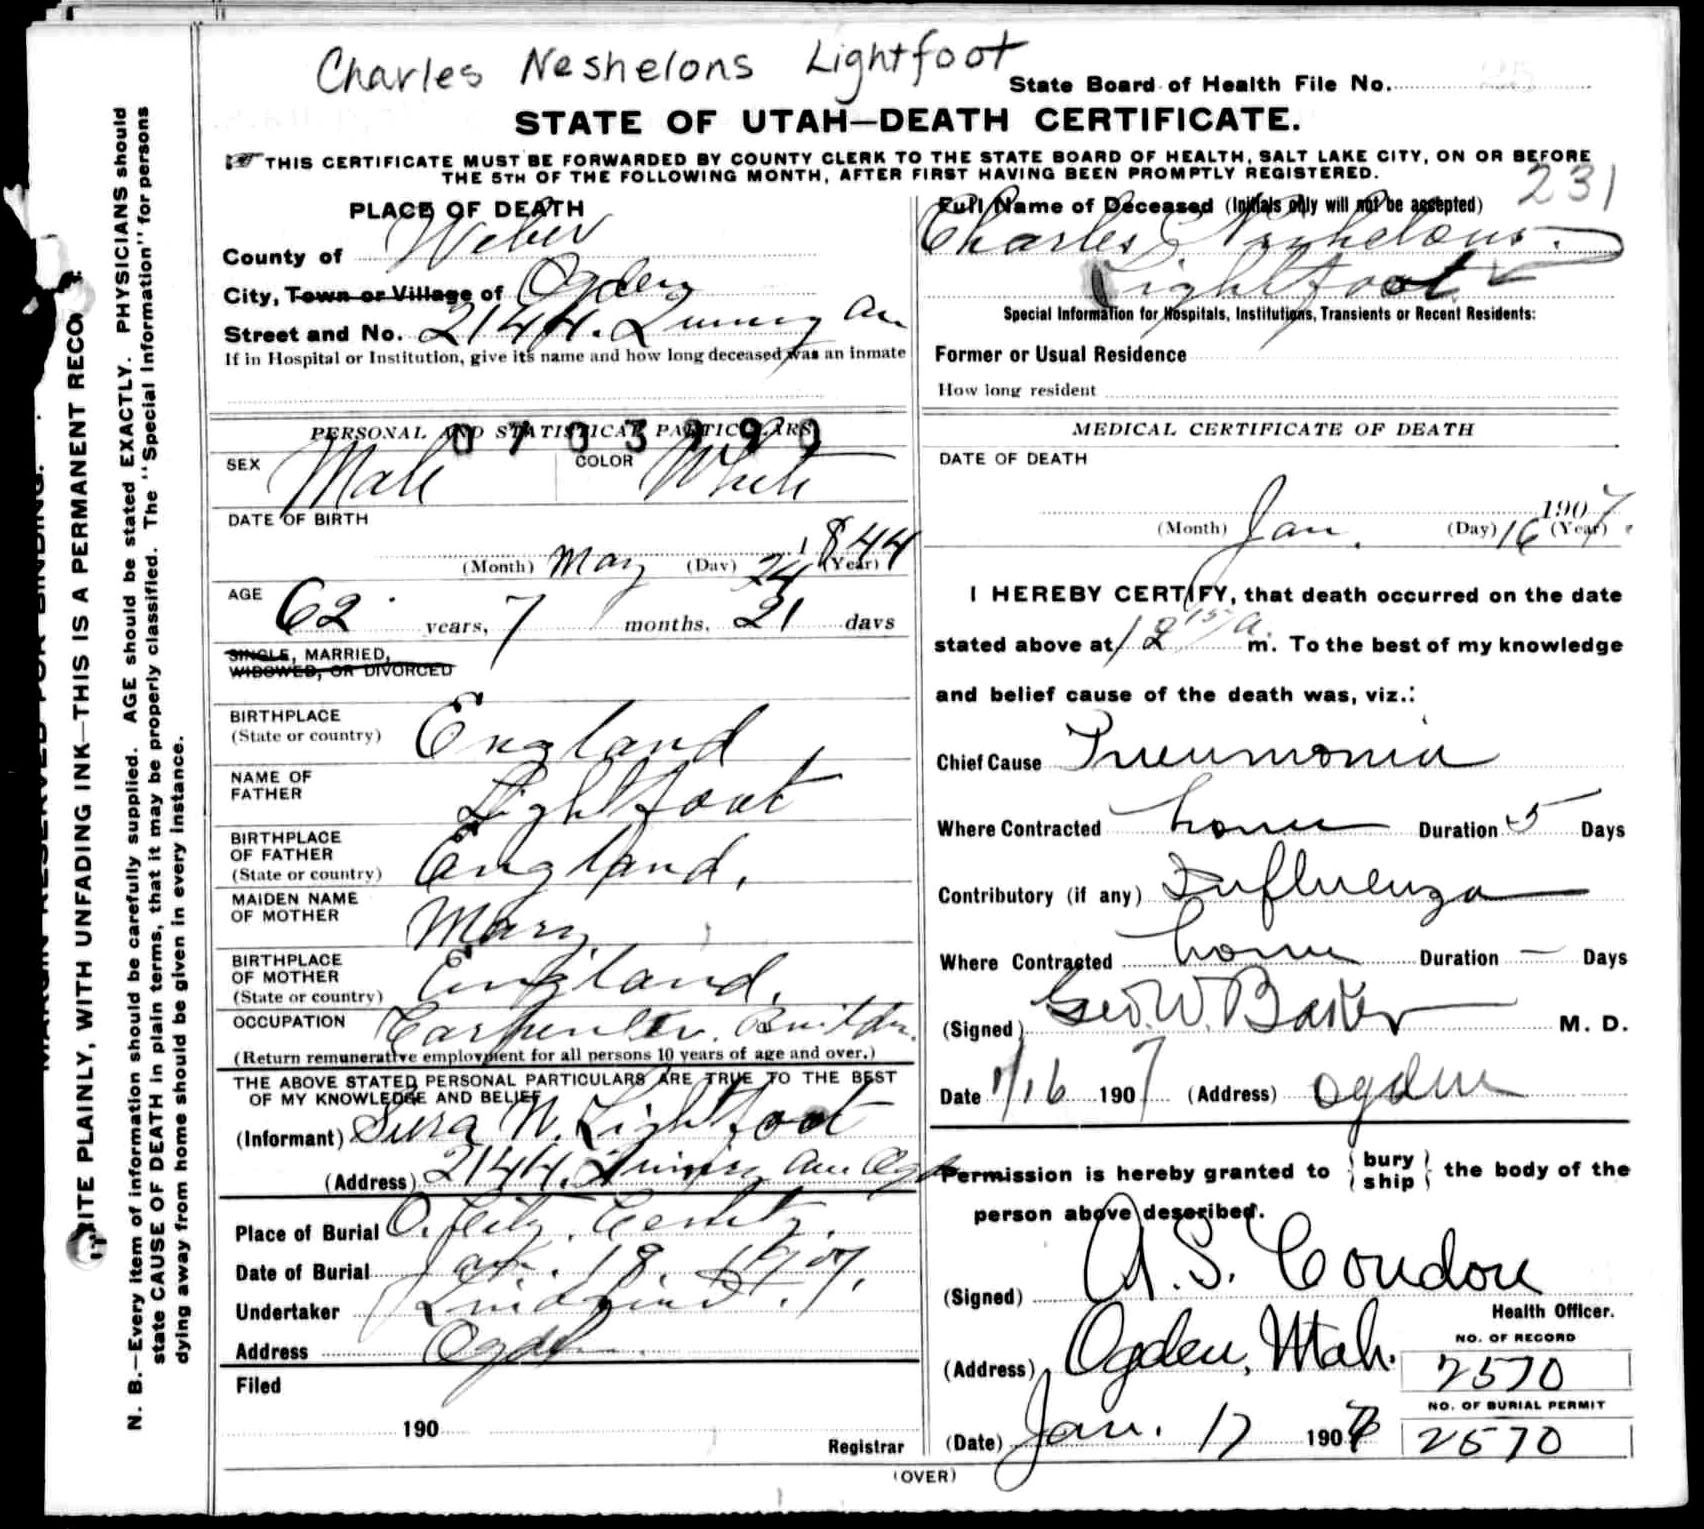 Charles Neshelons Lightfoot
State Board of Health File No.
STATE OF UTAH—DEATH CERTIFICATE.
☞ THIS CERTIFICATE MUST BE FORWARDED BY COUNTY CLERK TO THE STATE BOARD OF HEALTH, SALT LAKE CITY, ON OR BEFORE
THE 5TH OF THE FOLLOWING MONTH, AFTER FIRST HAVING BEEN PROMPTLY REGISTERED.
231
PLACE OF DEATH
County of Weber
City, Town or Village of Ogden
Street and No. 2144
If in Hospital or Institution, give its name and how long deceased was an inmate
PERSONAL AND STATISTICAL PARTICULARS
0703990
SEX Male COLOR White
DATE OF BIRTH
(Month) May (Day) 24 1844 (Year)
AGE 62 years, 7 months, 21 days
SINGLE, MARRIED,
WIDOWED, OR DIVORCED
BIRTHPLACE
(State or country) England
NAME OF
FATHER Lightfoot
BIRTHPLACE
OF FATHER
(State or country) England.
MAIDEN NAME
OF MOTHER Mary
BIRTHPLACE
OF MOTHER
(State or country) England.
OCCUPATION Carpenter. Builder
(Return remunerative employment for all persons 10 years of age and over.)
THE ABOVE STATED PERSONAL PARTICULARS ARE TRUE TO THE BEST
OF MY KNOWLEDGE AND BELIEF
(Informant) N. Lightfoot
(Address) 2144
Place of Burial O. City
Date of Burial Jan. 18. 1907.
Undertaker Lindquist.
Address Ogden
Filed
190
Registrar
Full Name of Deceased (Initials only will not be accepted)
Charles
Lightfoot
Special Information for Hospitals, Institutions, Transients or Recent Residents:
Former or Usual Residence
How long resident
MEDICAL CERTIFICATE OF DEATH
DATE OF DEATH
(Month) Jan. (Day) 16 1907 (Year)
I HEREBY CERTIFY, that death occurred on the date
stated above at 12 15/a. m. To the best of my knowledge
and belief cause of the death was, viz.:
Chief Cause Pneumonia
Where Contracted home Duration 5 Days
Contributory (if any) Influenza
Where Contracted home Duration — Days
(Signed) Geo. W. Baker M. D.
Date 1/16 1907 (Address) Ogden
Permission is hereby granted to { bury ship } the body of the
person above described.
(Signed) A. S. Condon
Health Officer.
(Address) Ogden, Utah.
NO. OF RECORD
2570
NO. OF BURIAL PERMIT
2570
(Date) Jan. 17 1907
(OVER)
MARGIN RESERVED FOR BINDING.
WRITE PLAINLY, WITH UNFADING INK—THIS IS A PERMANENT RECO
N. B.—Every item of information should be carefully supplied. AGE should be stated EXACTLY. PHYSICIANS should
state CAUSE OF DEATH in plain terms, that it may be properly classified. The "Special Information" for persons
dying away from home should be given in every instance.